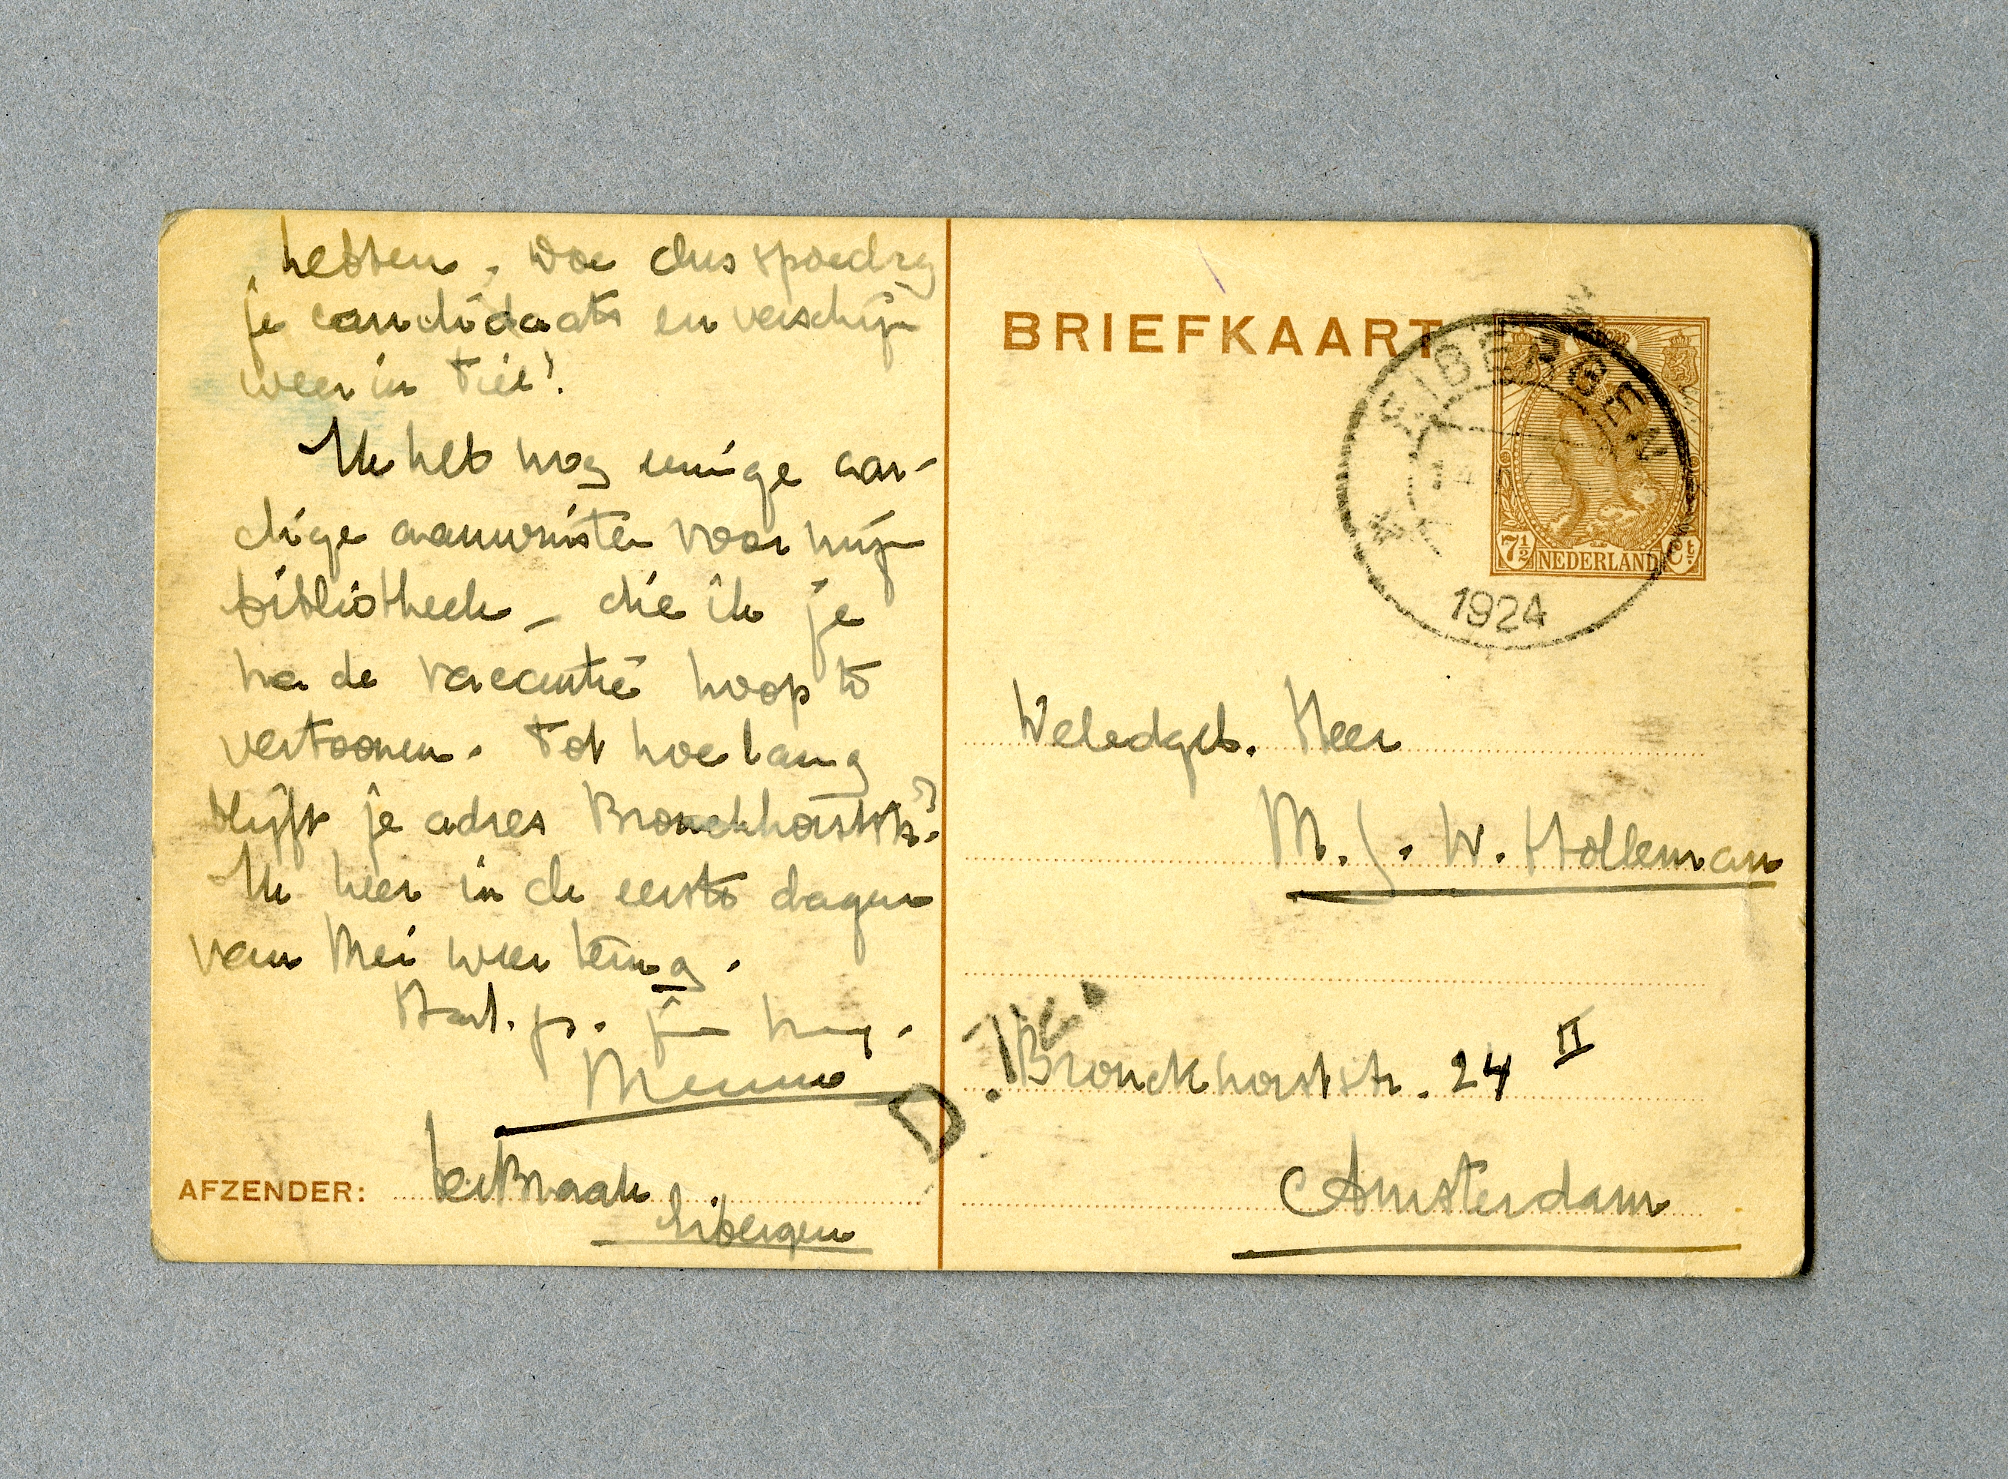 hebben. Doe dus spoedig
je candidaats en verschijn
weer in Tiel!
Ik heb nog eenige aar-
dige aanwinsten voor mijn
bibliotheek – die ik je
na de vacantie hoop te
vertoonen. Tot hoelang
blijft je adres Bronckhorststr.?
Ik keer in de eerste dagen
van Mei weer terug.
Hart. gr. je
Menno
AFZENDER: ter Braak
Eibergen
BRIEFKAART
EIBERGEN
1924
7½ NEDERLAND Ct
Weledgeb. Heer
M. J. W. Holleman
Bronckhorststr. 24 II
Amsterdam